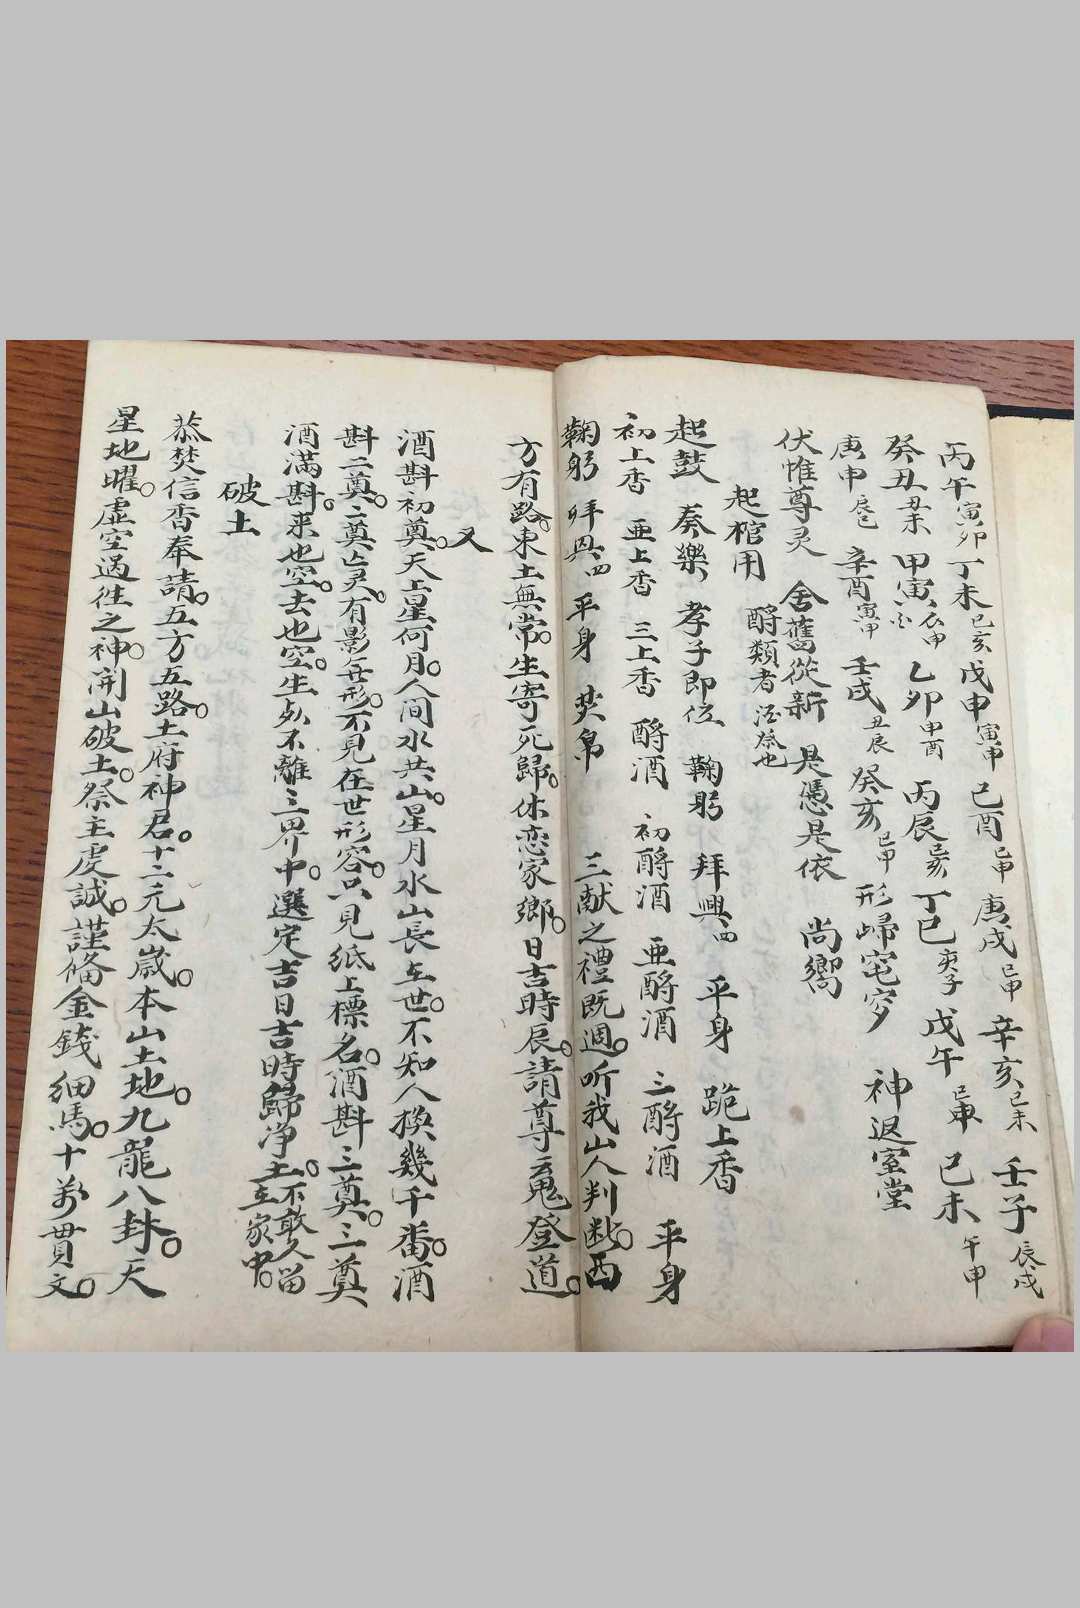 丙午寅卯 丁未巳亥 戊申寅申 己酉巳申 庚戌巳申 辛亥巳未 壬子辰戌
癸丑丑未 甲寅 乙卯甲酉 丙辰巳亥 丁巳庚子 戊午 己未午申
庚申辰巳 辛酉寅甲 壬戌丑辰 癸亥巳申 形歸窀穸 神退室堂
伏惟尊灵 舍舊從新 是憑是依 尚嚮
起棺用 酹類者酒祭也
起鼓 奏樂 孝子即位 鞠躬 拜興四 平身 跪上香
初上香 亜上香 三上香 酹酒 初酹酒 亜酹酒 三酹酒 平身
鞠躬 拜興四 平身 焚帛 三献之禮既週。听我山人判断。西
方有路。東土無常。生寄死歸。休恋家鄉。日吉時辰。請尊魂登道。
又
酒斟初奠。天上星何月。人间水共山。星月水山長在世。不知人換幾千番。酒
斟二奠。二奠亡灵。有影無形。不見在世形容。只見纸上標名。酒斟三奠。三奠
酒滿斟。来也空。去也空。生死不離三界中。選定吉日吉時歸净土。不敢久留在家中。
破土
恭焚信香奉請。五方五路。土府神君。十二元太歲。本山土地。九龍八卦。天
星地曜。虛空過往之神。開山破土。祭主虔誠。謹偹金錢細馬。十萬貫文。